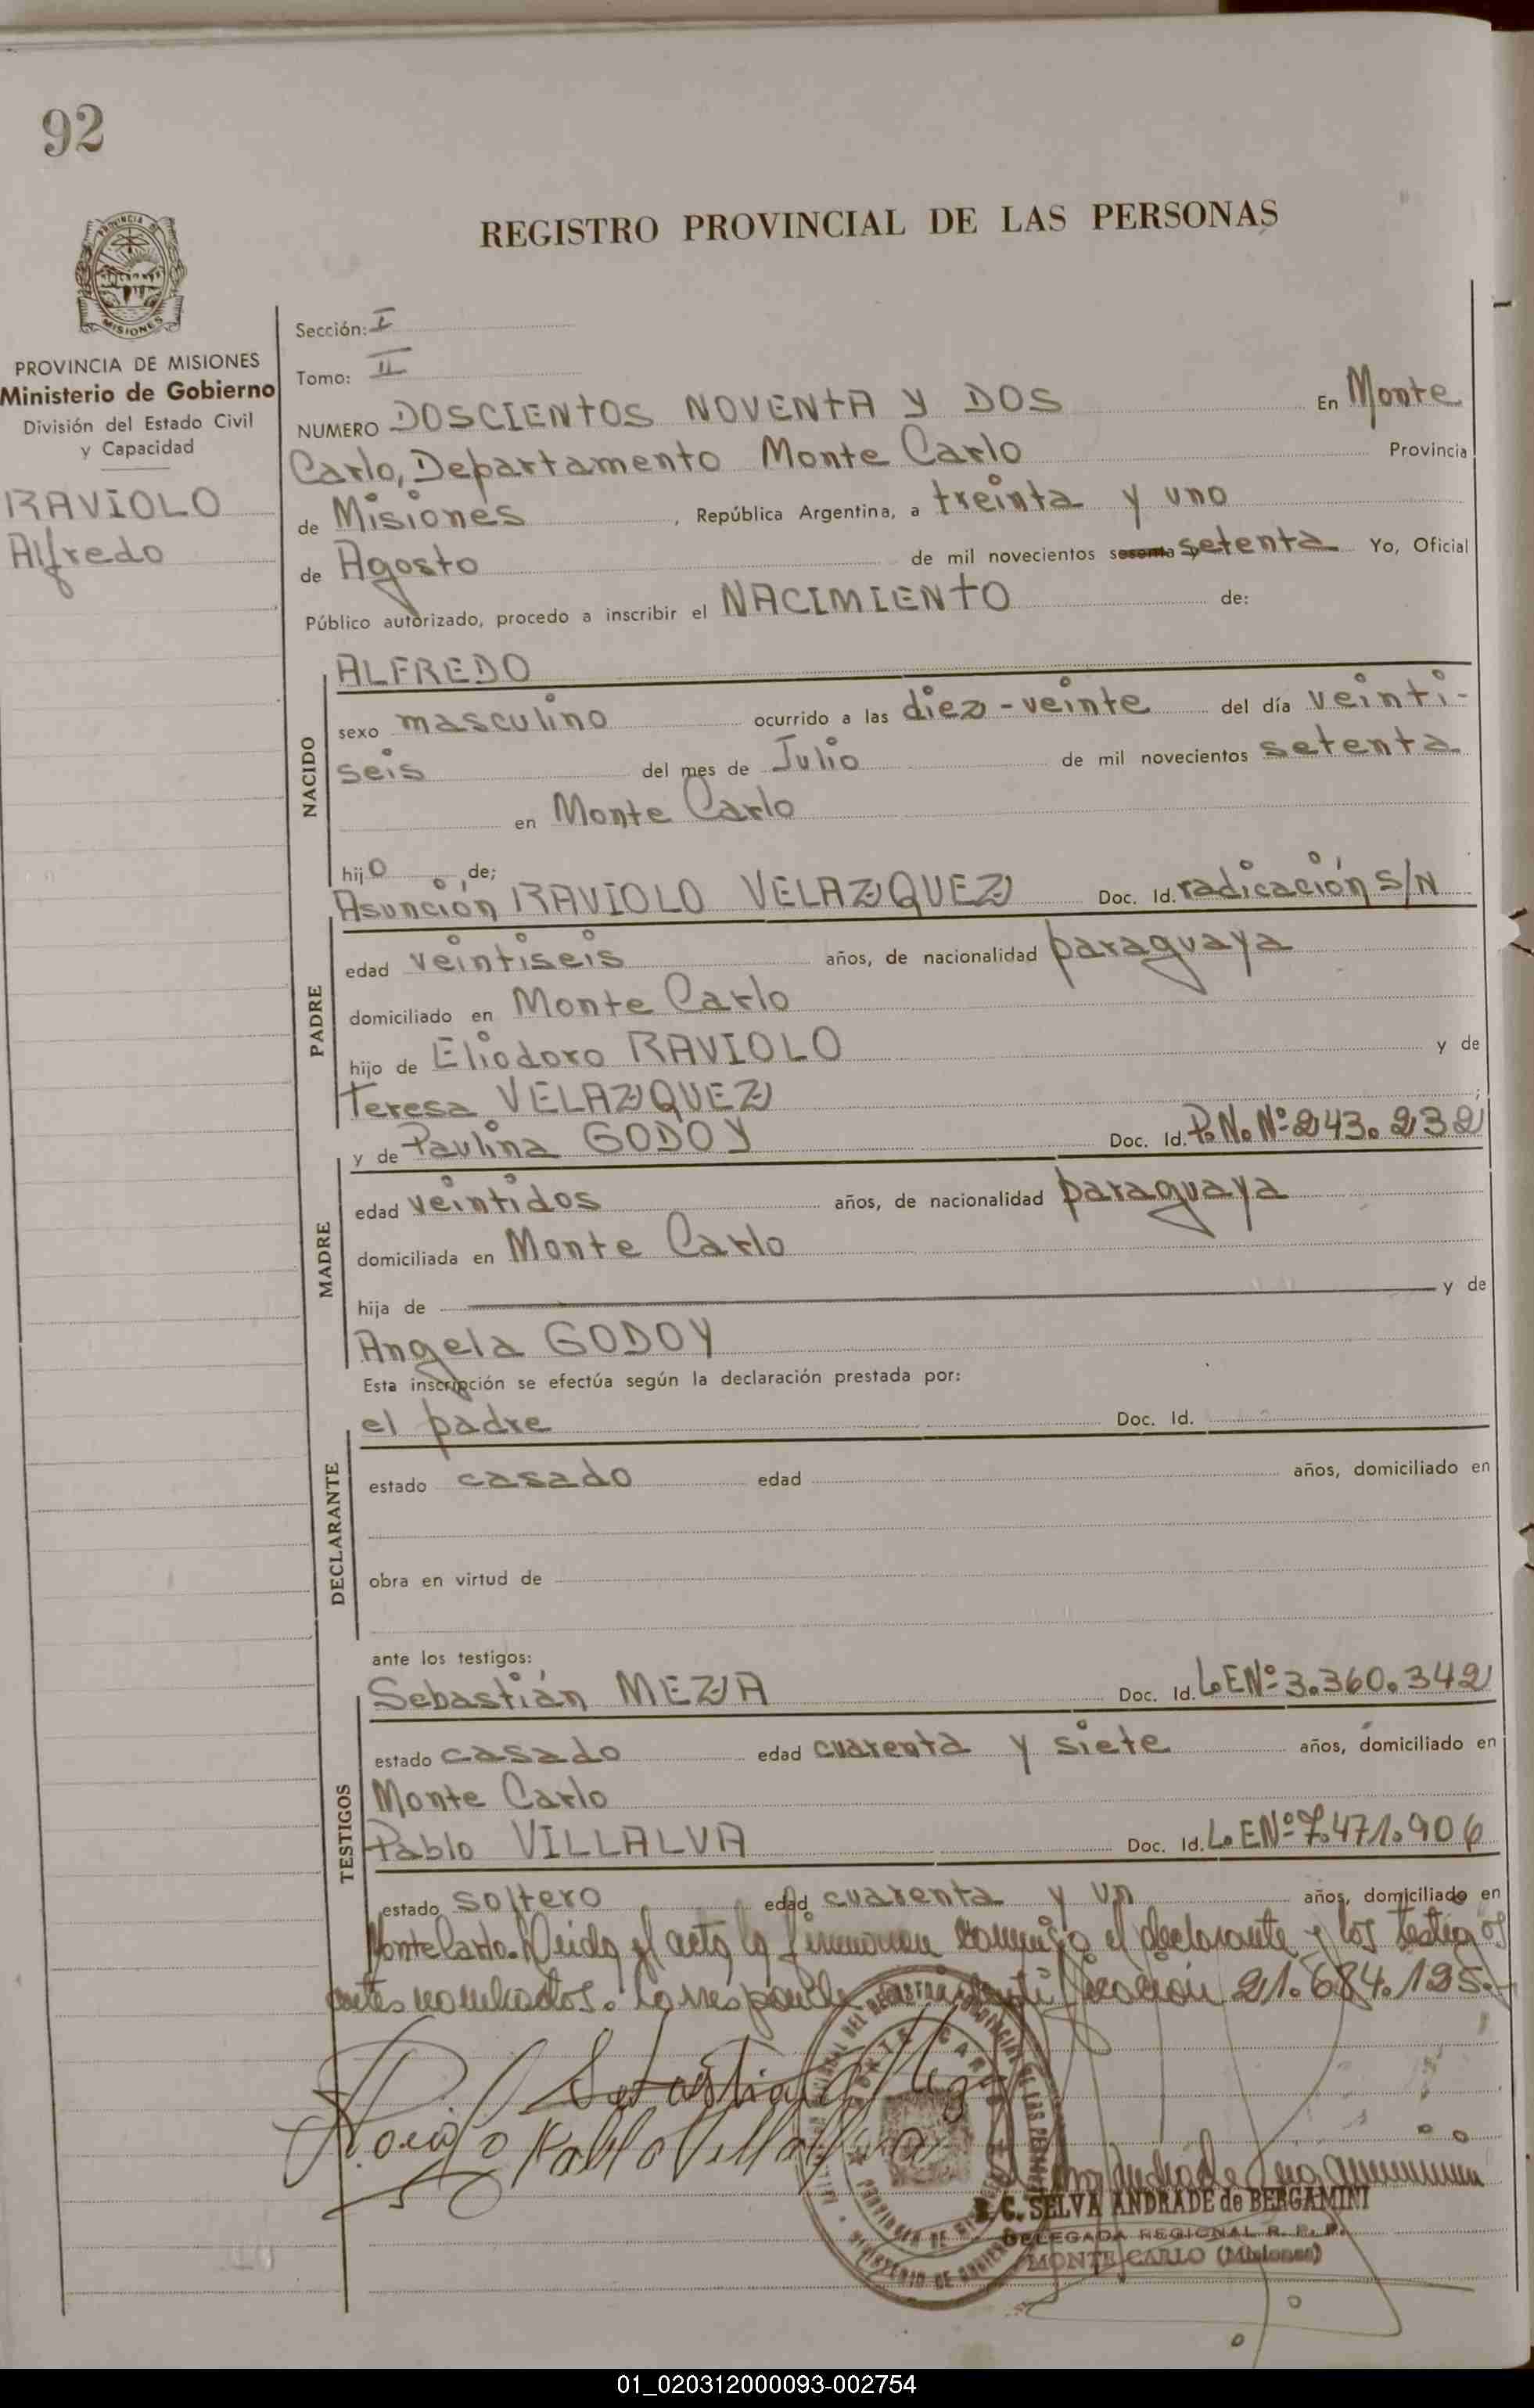 92
REGISTRO PROVINCIAL DE LAS PERSONAS
PROVINCIA
MISIONES
PROVINCIA DE MISIONES
Ministerio de Gobierno
División del Estado Civil
y Capacidad
RAVIOLO
Alfredo
Sección: I
Tomo: II
NUMERO DOSCIENTOS NOVENTA Y DOS En Monte
Carlo, Departamento Monte Carlo Provincia
de Misiones, República Argentina, a treinta y uno
de Agosto de mil novecientos sesenta y setenta Yo, Oficial
Público autorizado, procedo a inscribir el NACIMIENTO de:
NACIDO
ALFREDO
sexo masculino ocurrido a las diez-veinte del día veinti-
seis del mes de Julio de mil novecientos setenta
en Monte Carlo
hijo de;
PADRE
Asunción RAVIOLO VELAZQUEZ Doc. Id. radicación S/N
edad veintiseis años, de nacionalidad paraguaya
domiciliado en Monte Carlo
hijo de Eliodoro RAVIOLO y de
Teresa VELAZQUEZ ;
MADRE
y de Paulina GODOY Doc. Id. P.N. Nº 243.232
edad veintidos años, de nacionalidad paraguaya
domiciliada en Monte Carlo
hija de y de
Angela GODOY
Esta inscripción se efectúa según la declaración prestada por:
DECLARANTE
el padre Doc. Id.
estado casado edad años, domiciliado en
obra en virtud de
ante los testigos:
TESTIGOS
Sebastián MEZA Doc. Id. L.E Nº 3.360.342
estado casado edad cuarenta y siete años, domiciliado en
Monte Carlo
Pablo VILLALVA Doc. Id. L.E Nº 7.471.906
estado soltero edad cuarenta y un años, domiciliado en
Monte Carlo. Leida el acta la firmaron conmigo el declarante y los testigos
antes nombrados. Corresponde identificación 21.684.125.-
Sebastian Meza
Pablo Villalva
MONTE CARLO
PROVINCIA DE MISIONES
MINISTERIO DE GOBIERNO
C. SELVA ANDRADE de BERGAMINI
DELEGADA REGIONAL R. P. P.
MONTE CARLO (Misiones)
01_020312000093-002754